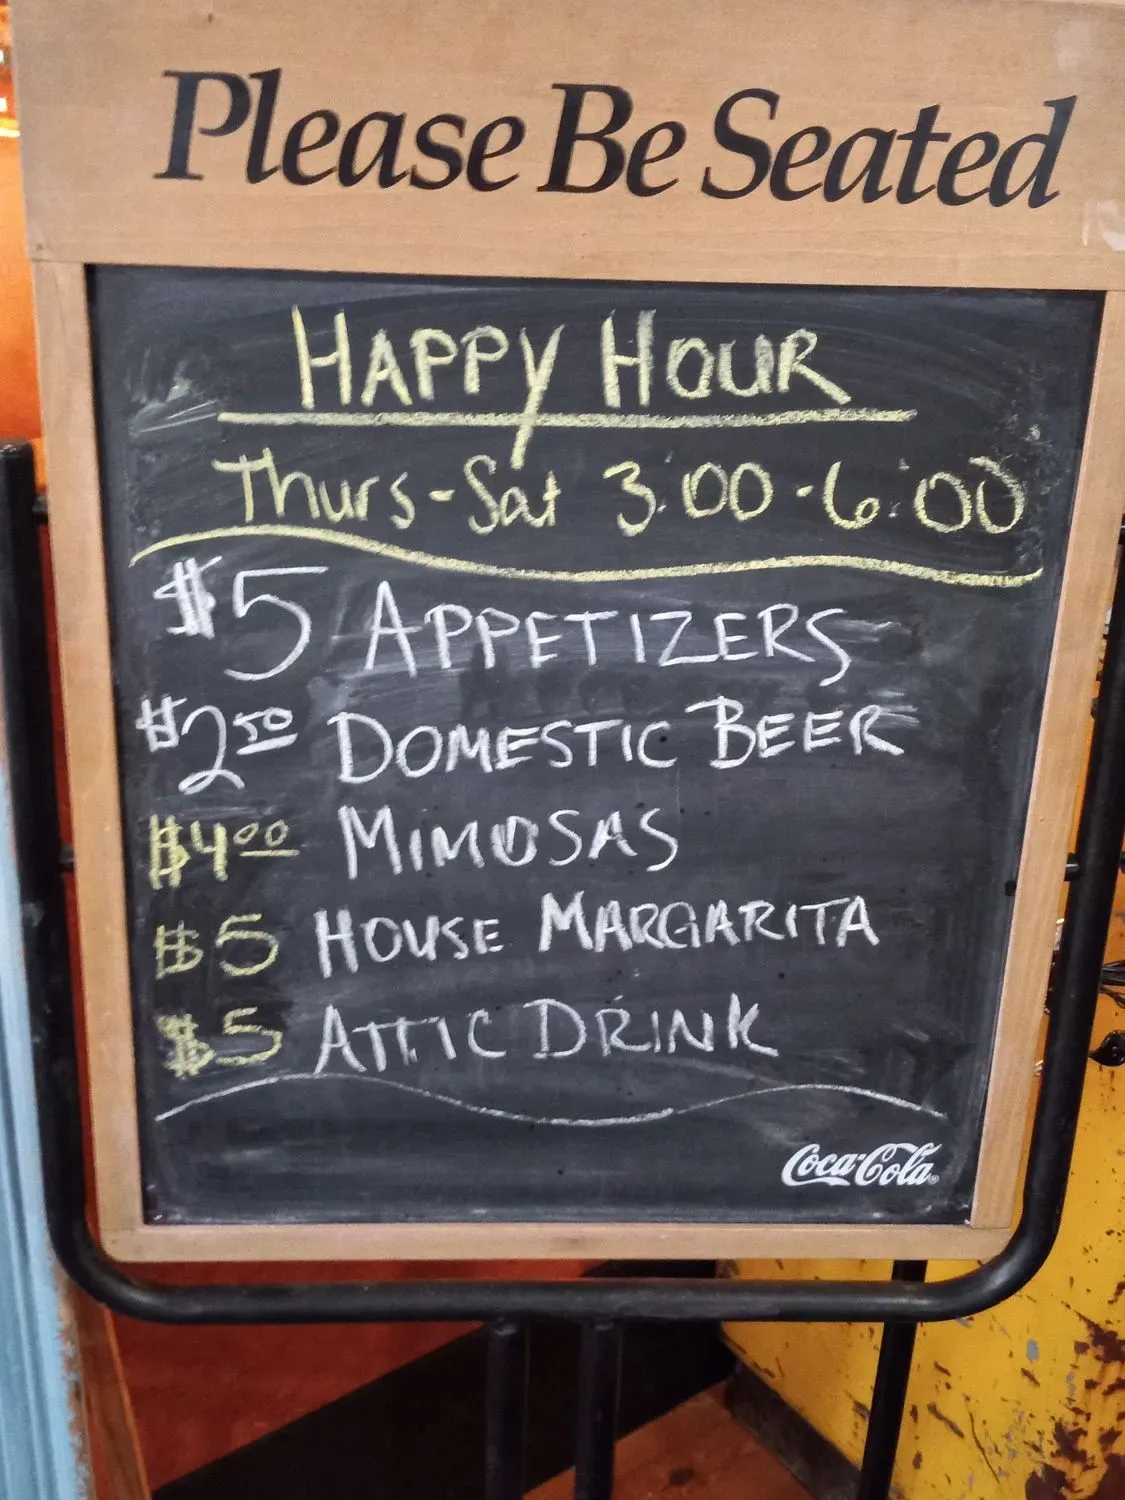 Please Be Seated
HAPPY HOUR
Thurs-Sat 3:00-6:00
$5 APPETIZERS
$2.50 DOMESTIC BEER
$4.00 MIMOSAS
$5 HOUSE MARGARITA
$5 ATTIC DRINK
Coca-Cola®